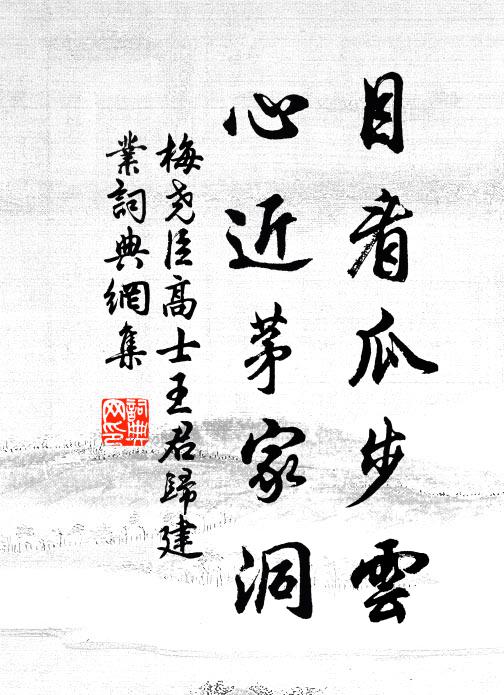 目看瓜步雲
心近茅家洞
梅堯臣高士王君歸建
業詞典網集
詞典
網印